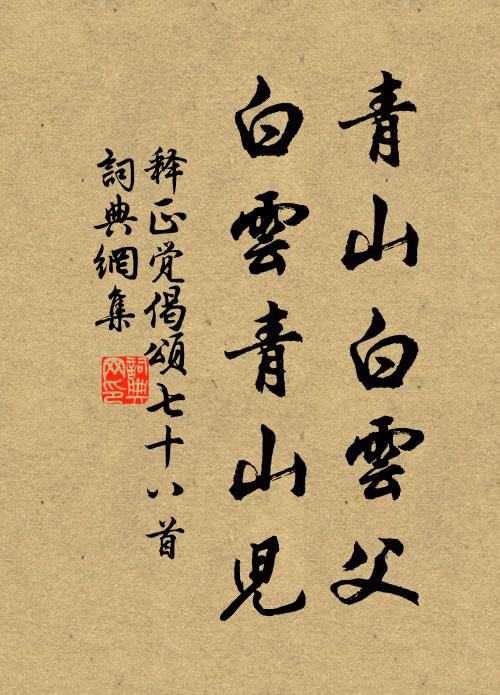 青山白雲父
白雲青山児
释正觉偈頌七十八首
詞典網集
詞典網印